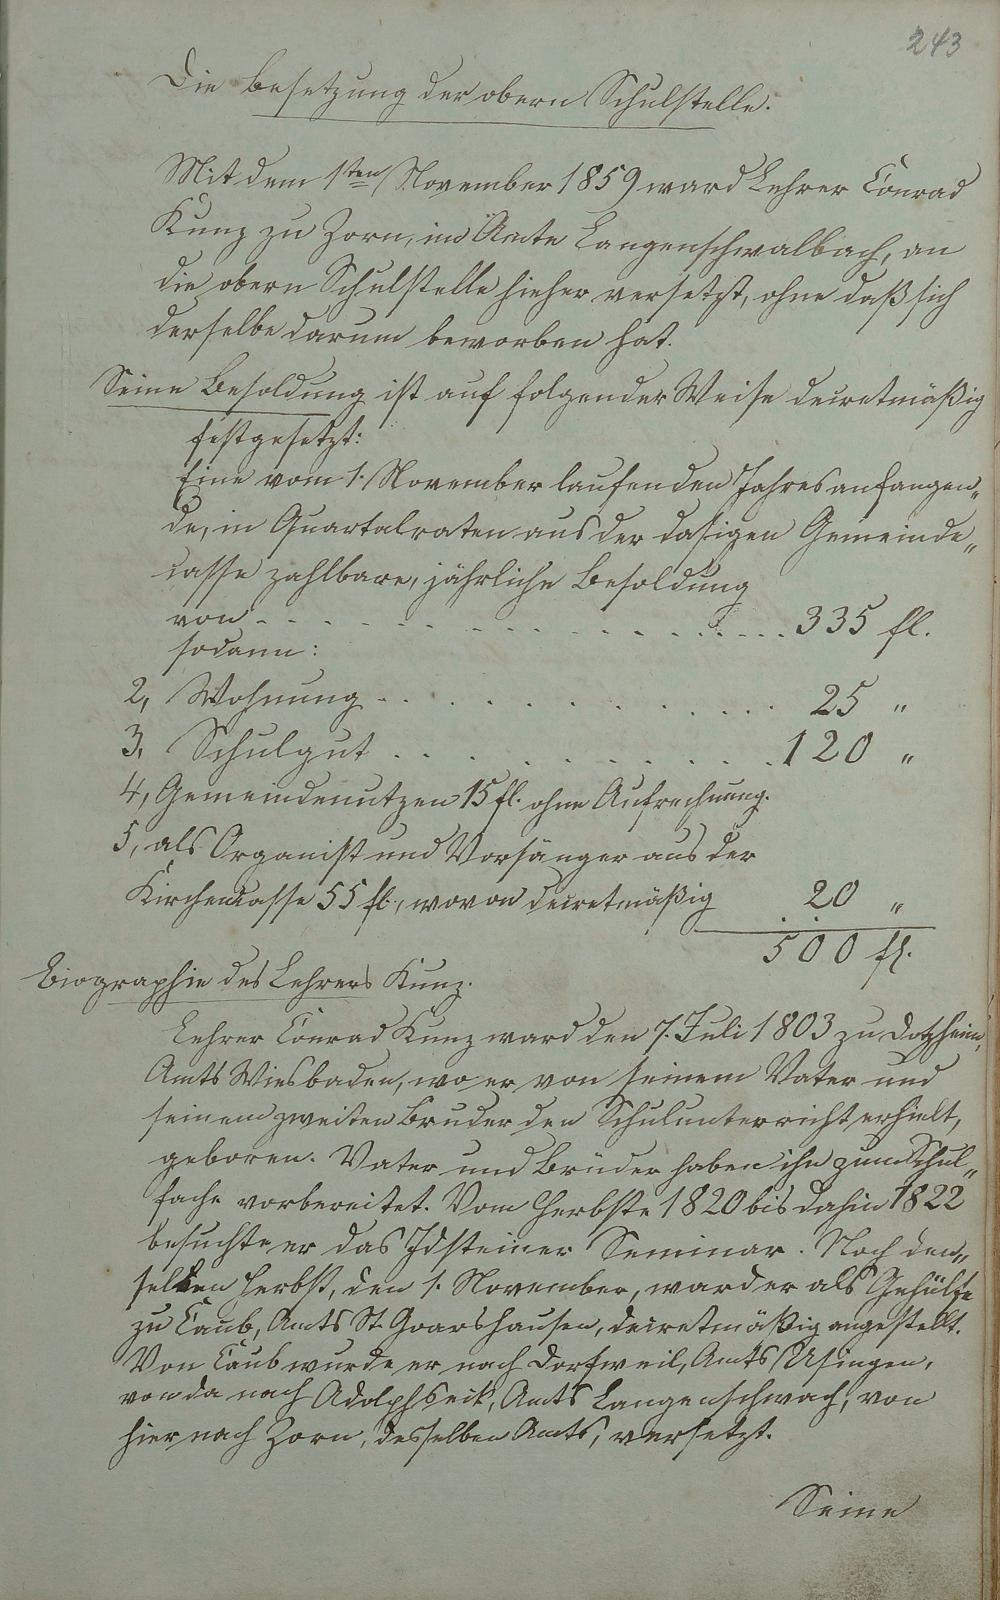 243
Die Besetzung der obern Schulstelle.
Mit dem 1ten November 1859 ward Lehrer Conrad
Kunz zu Zorn, im Amte Langenschwalbach, an
die obern Schulstelle hieher versetzt, ohne daß sich
derselbe darum beworben hat.
Seine Besoldung ist auf folgender Weise decretmäßig
festgesetzt:
Eine vom 1. November laufenden Jahres anfangen„
de, in Quartalraten aus der dasigen Gemeinde„
casse zahlbare, jährliche Besoldung
von - - - - - - - - - - - - - 335 fl.
sodann:
2, Wohnung - . . . . . . . . . . . 25 „
3, Schulgut . . . . . . . . . . . 120 „
4, Gemeindenutzen 15 fl. ohne Aufrechnung.
5, als Organist und Vorsänger aus der
Kirchencasse 55 fl., wovon decretmäßig 20 „
500 fl.
Biographie des Lehrers Kunz.
Lehrer Conrad Kunz ward den 7. Juli 1803 zu Dotzheim,
Amts Wiesbaden, wo er von seinem Vater und
seinem zweiten Bruder den Schulunterricht erhielt,
geboren. Vater und Brüder haben ihn zum Schul„
fache vorbereitet. Vom Herbste 1820 bis dahin 1822
besuchte er das Idsteiner Seminar. Noch den„
selben Herbst, den 1. November, ward er als Gehülfe
zu Caub, Amts St. Goarshausen, decretmäßig angestellt.
Von Caub wurde er nach Dorfweil, Amts Usingen,
von da nach Adolphseck, Amts Langenschwach, von
hier nach Zorn, desselben Amts, versetzt.
Seine